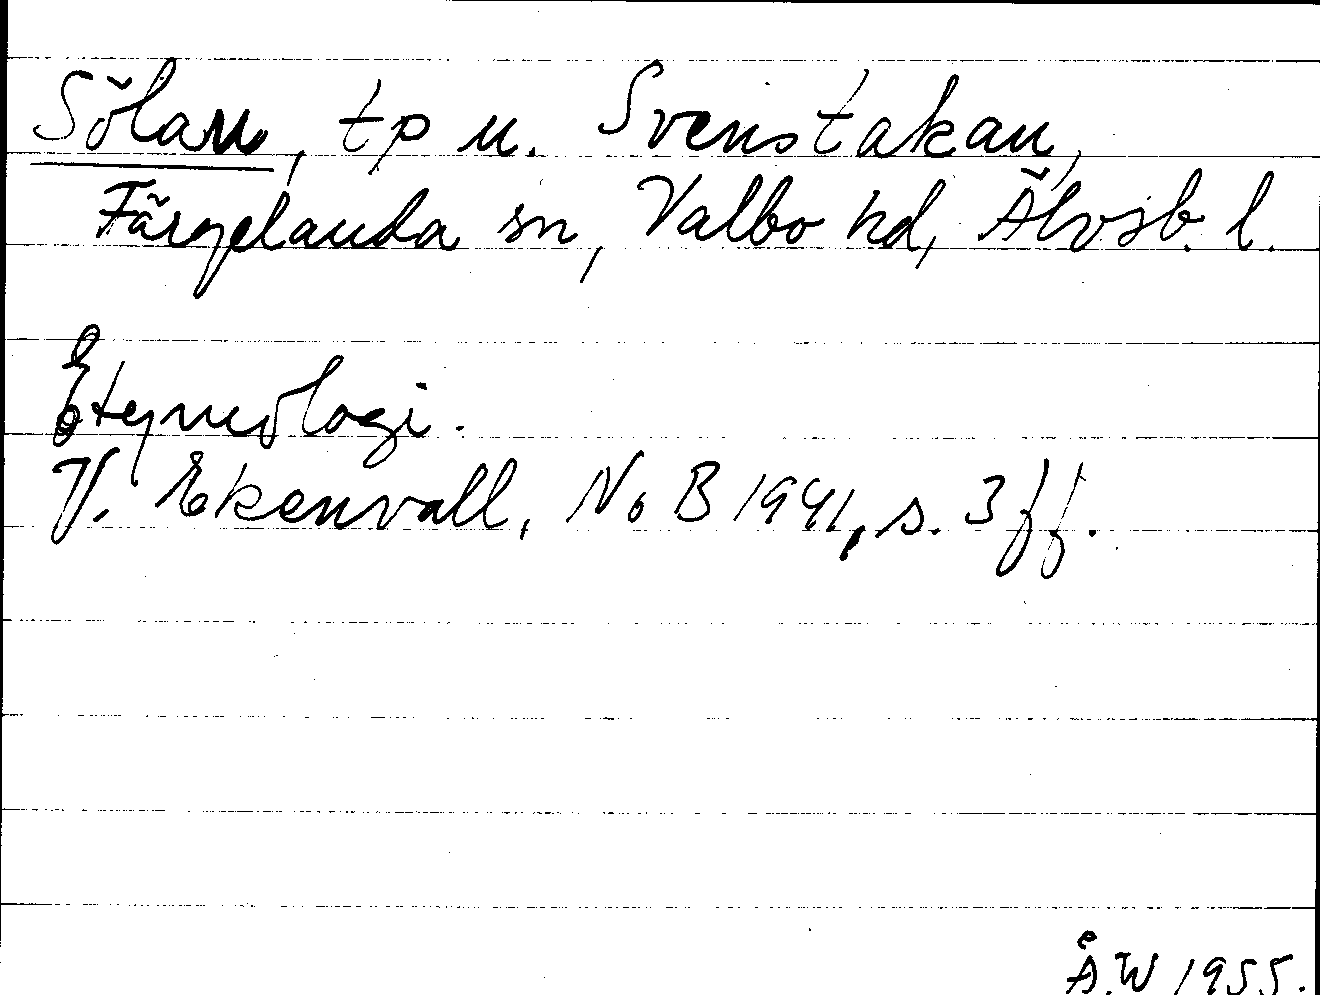 Sölan, tp u. Svenstakan,
Färgelanda sn, Valbo hd, Älvsb. l.
Etymologi.
V. Ekenvall, NoB 1941, s. 3 ff.
Å.W 1955.